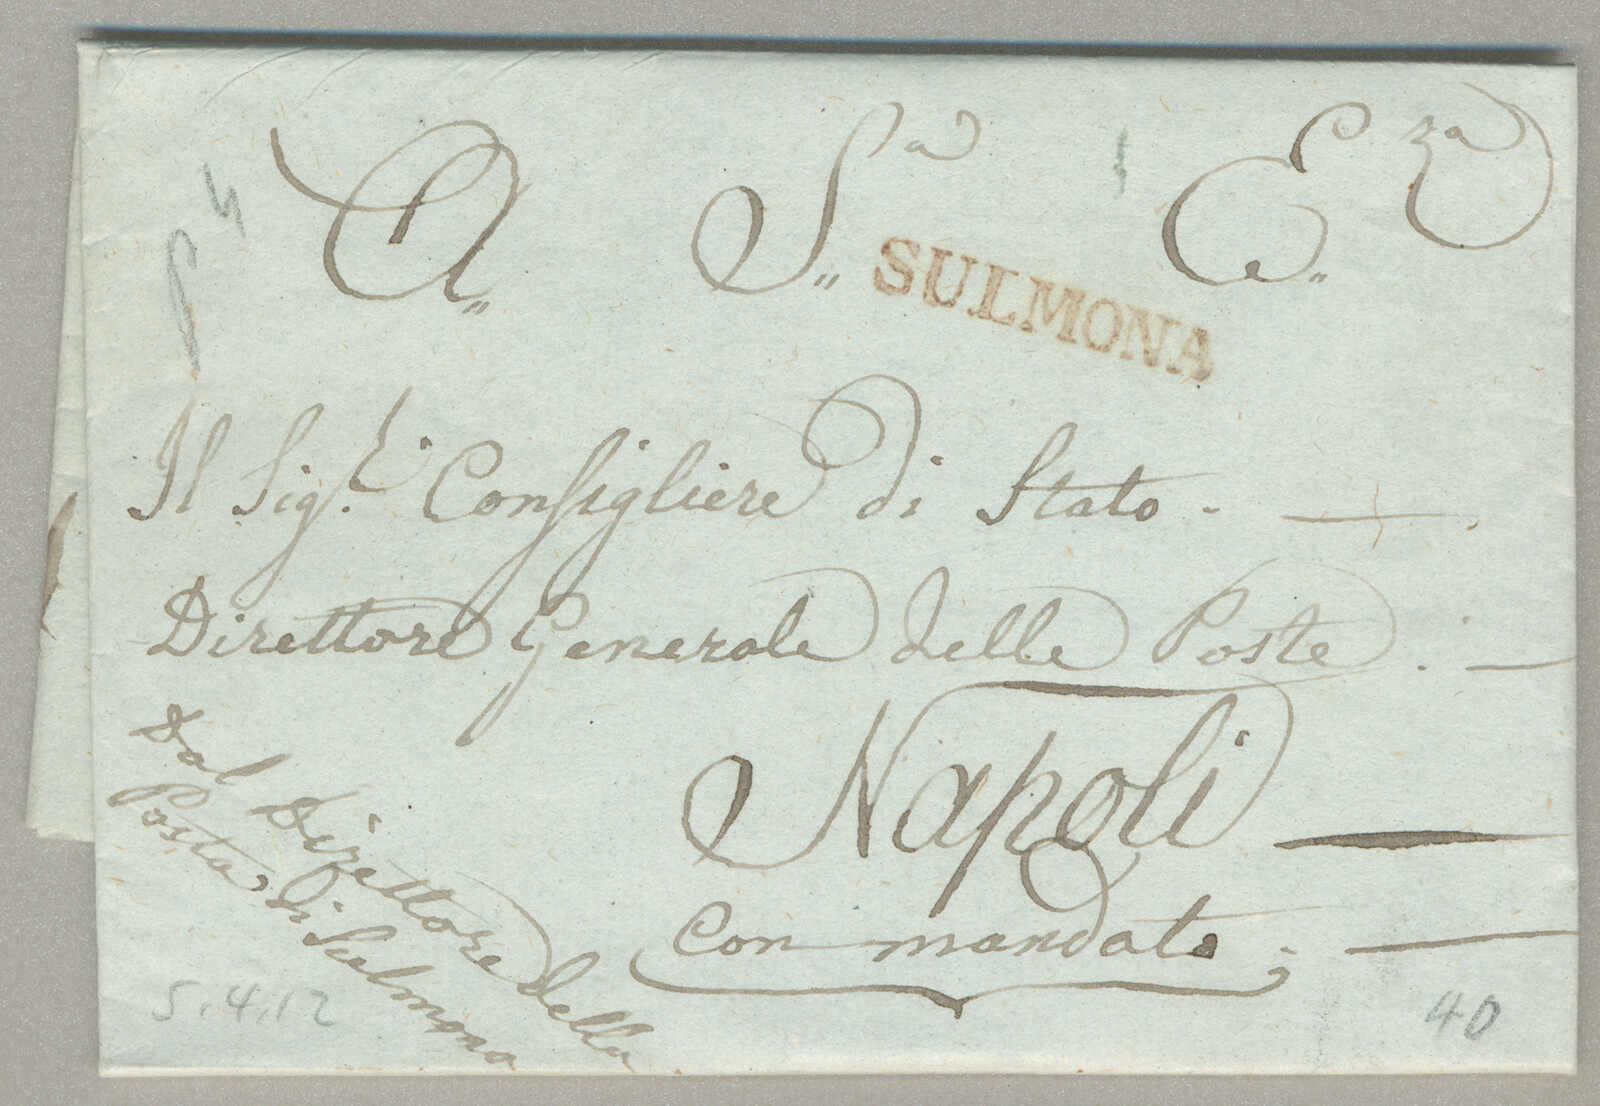 A,, S,,a E,,za
SULMONA
Il Sig.r Consigliere di Stato.
Direttore Generale delle Poste.
Napoli
Con mandato;
Dal Direttore della
Posta di Sulmona
5.4.12
40